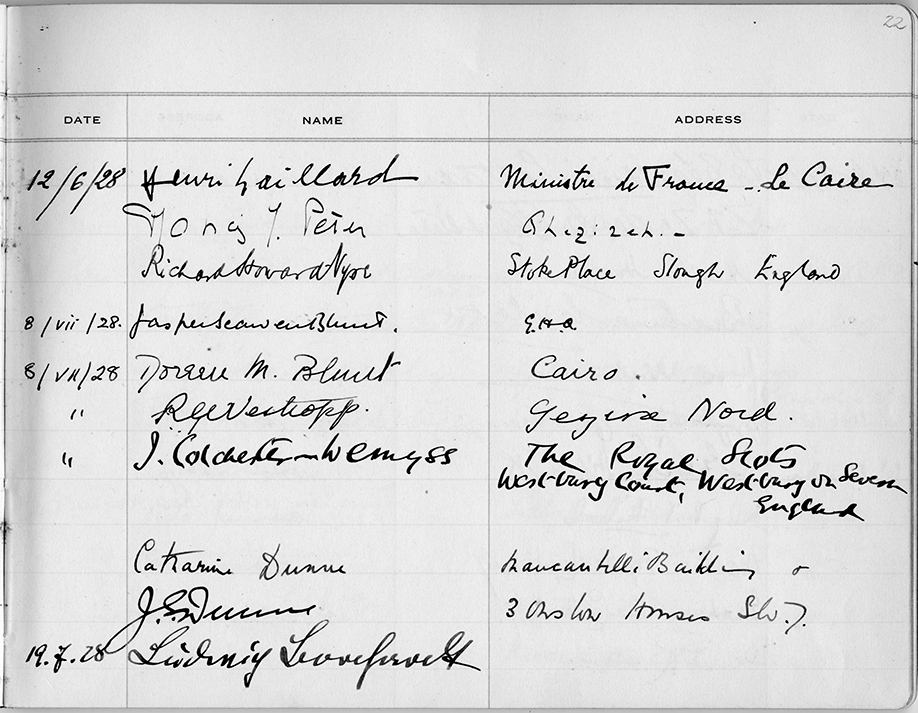 22
DATE NAME ADDRESS
12/6/28 Henri Gaillard Ministre de France - Le Caire
J. Peter Ghezireh. -
Richard Howard Vyse Stoke Place Slough England
8/vii/28. Jasper Scawen Blunt. G.H.Q
8/VII/28 Doreen M. Blunt Cairo.
" Gezira Nord.
" J. Colchester-Wemyss The Royal Scots
Westbury Court, Westbury on Severn
England
Catharine Dunne Building or
J. S. Dunne 3 Onslow Houses S.W.7.
19.7.28 Ludwig Borchardt